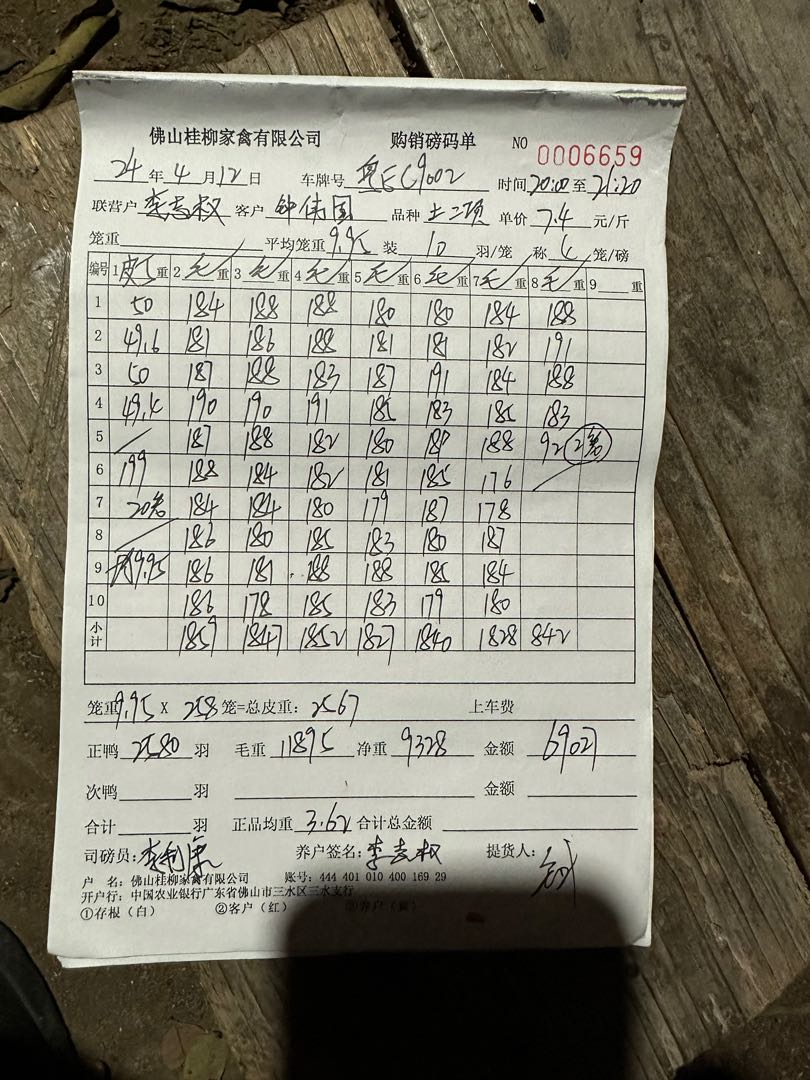 佛山桂柳家禽有限公司 购销磅码单 NO 0006659
24 年 4 月 12 日 车牌号 粤EC9002 时间 20:00 至 21:20
联营户 李志权 客户 钟伟国 品种 土二项 单价 7.4 元/斤
笼重 平均笼重 9.95 装 10 羽/笼 称 4 笼/磅
编号 1 皮 重 2 毛 重 3 毛 重 4 毛 重 5 毛 重 6 毛 重 7 毛 重 8 毛 重 9 重
1 50 184 188 188 180 180 184 188
2 49.6 181 186 188 181 181 182 191
3 50 187 188 183 187 191 184 188
4 49.4 190 190 191 185 183 185 183
5 / 187 188 182 180 187 188 92 2笼
6 199 188 184 182 181 185 176
7 20笼 184 184 180 179 187 178
8 / 186 180 185 183 180 187
9 9.95 186 181 188 188 185 184
10 186 178 185 183 179 180
小计 1859 1847 1852 1827 1840 1828 842
笼重 9.95 X 258 笼=总皮重: 2567 上车费
正鸭 2580 羽 毛重 11895 净重 9328 金额 69027
次鸭 羽 金额
合计 羽 正品均重 3.62 合计总金额
司磅员: 养户签名: 李志权 提货人:
户 名: 佛山桂柳家禽有限公司 账号: 444 401 010 400 169 29
开户行: 中国农业银行广东省佛山市三水区三水支行
①存根(白) ②客户(红) ③养户(黄)